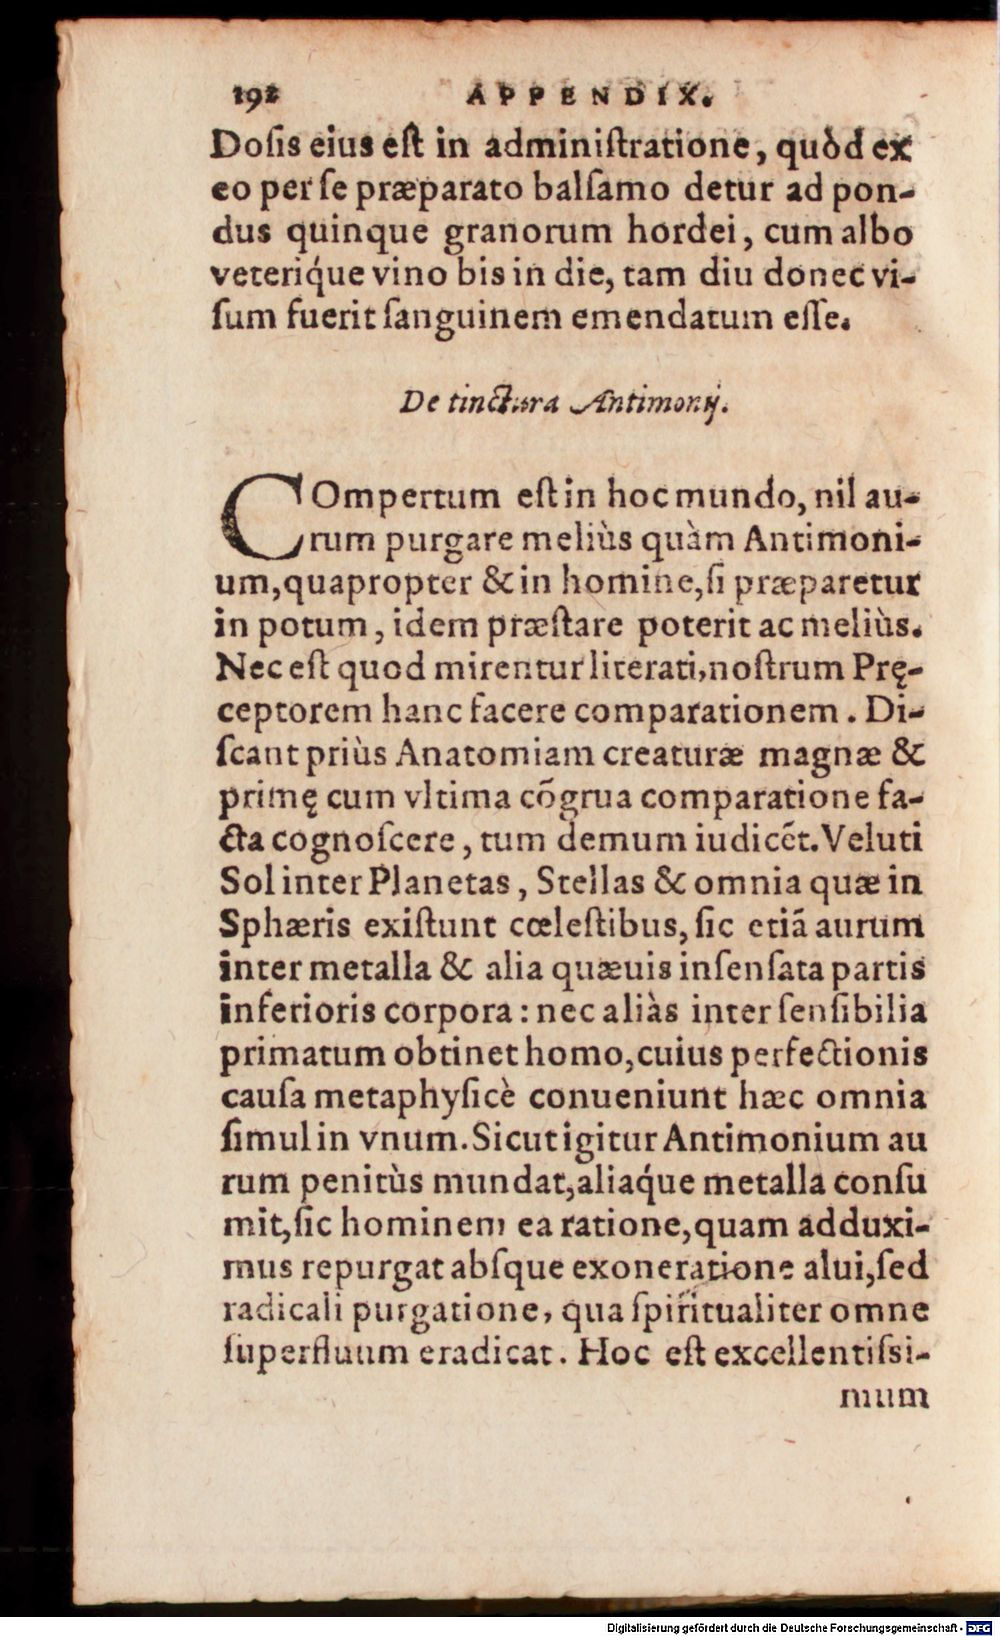 192 APPENDIX.
Doſis eius eſt in adminiſtratione, quòd ex
eo per ſe præparato balſamo detur ad pon-
dus quinque granorum hordei, cum albo
veteriq́ue vino bis in die, tam diu donec vi-
ſum fuerit ſanguinem emendatum eſſe.
De tinctura Antimonij.
COmpertum eſt in hoc mundo, nil au-
rum purgare meliùs quàm Antimoni-
um, quapropter & in homine, ſi præparetur
in potum, idem præſtare poterit ac meliùs.
Nec eſt quod mirentur literati, noſtrum Prę-
ceptorem hanc facere comparationem. Di-
ſcant priùs Anatomiam creaturæ magnæ &
primę cum vltima cõgrua comparatione fa-
cta cognoſcere, tum demum iudicẽt. Veluti
Sol inter Planetas, Stellas & omnia quæ in
Sphæris exiſtunt cœleſtibus, ſic etiã aurum
inter metalla & alia quæuis inſenſata partis
inferioris corpora: nec aliàs inter ſenſibilia
primatum obtinet homo, cuius perfectionis
cauſa metaphyſicè conueniunt hæc omnia
ſimul in vnum. Sicut igitur Antimonium au
rum penitùs mundat, aliaq́ue metalla conſu
mit, ſic hominem ea ratione, quam adduxi-
mus repurgat abſque exoneratione alui, ſed
radicali purgatione, qua ſpiritualiter omne
ſuperfluum eradicat. Hoc eſt excellentiſsi-
mum
Digitalisierung gefördert durch die Deutsche Forschungsgemeinschaft - DFG